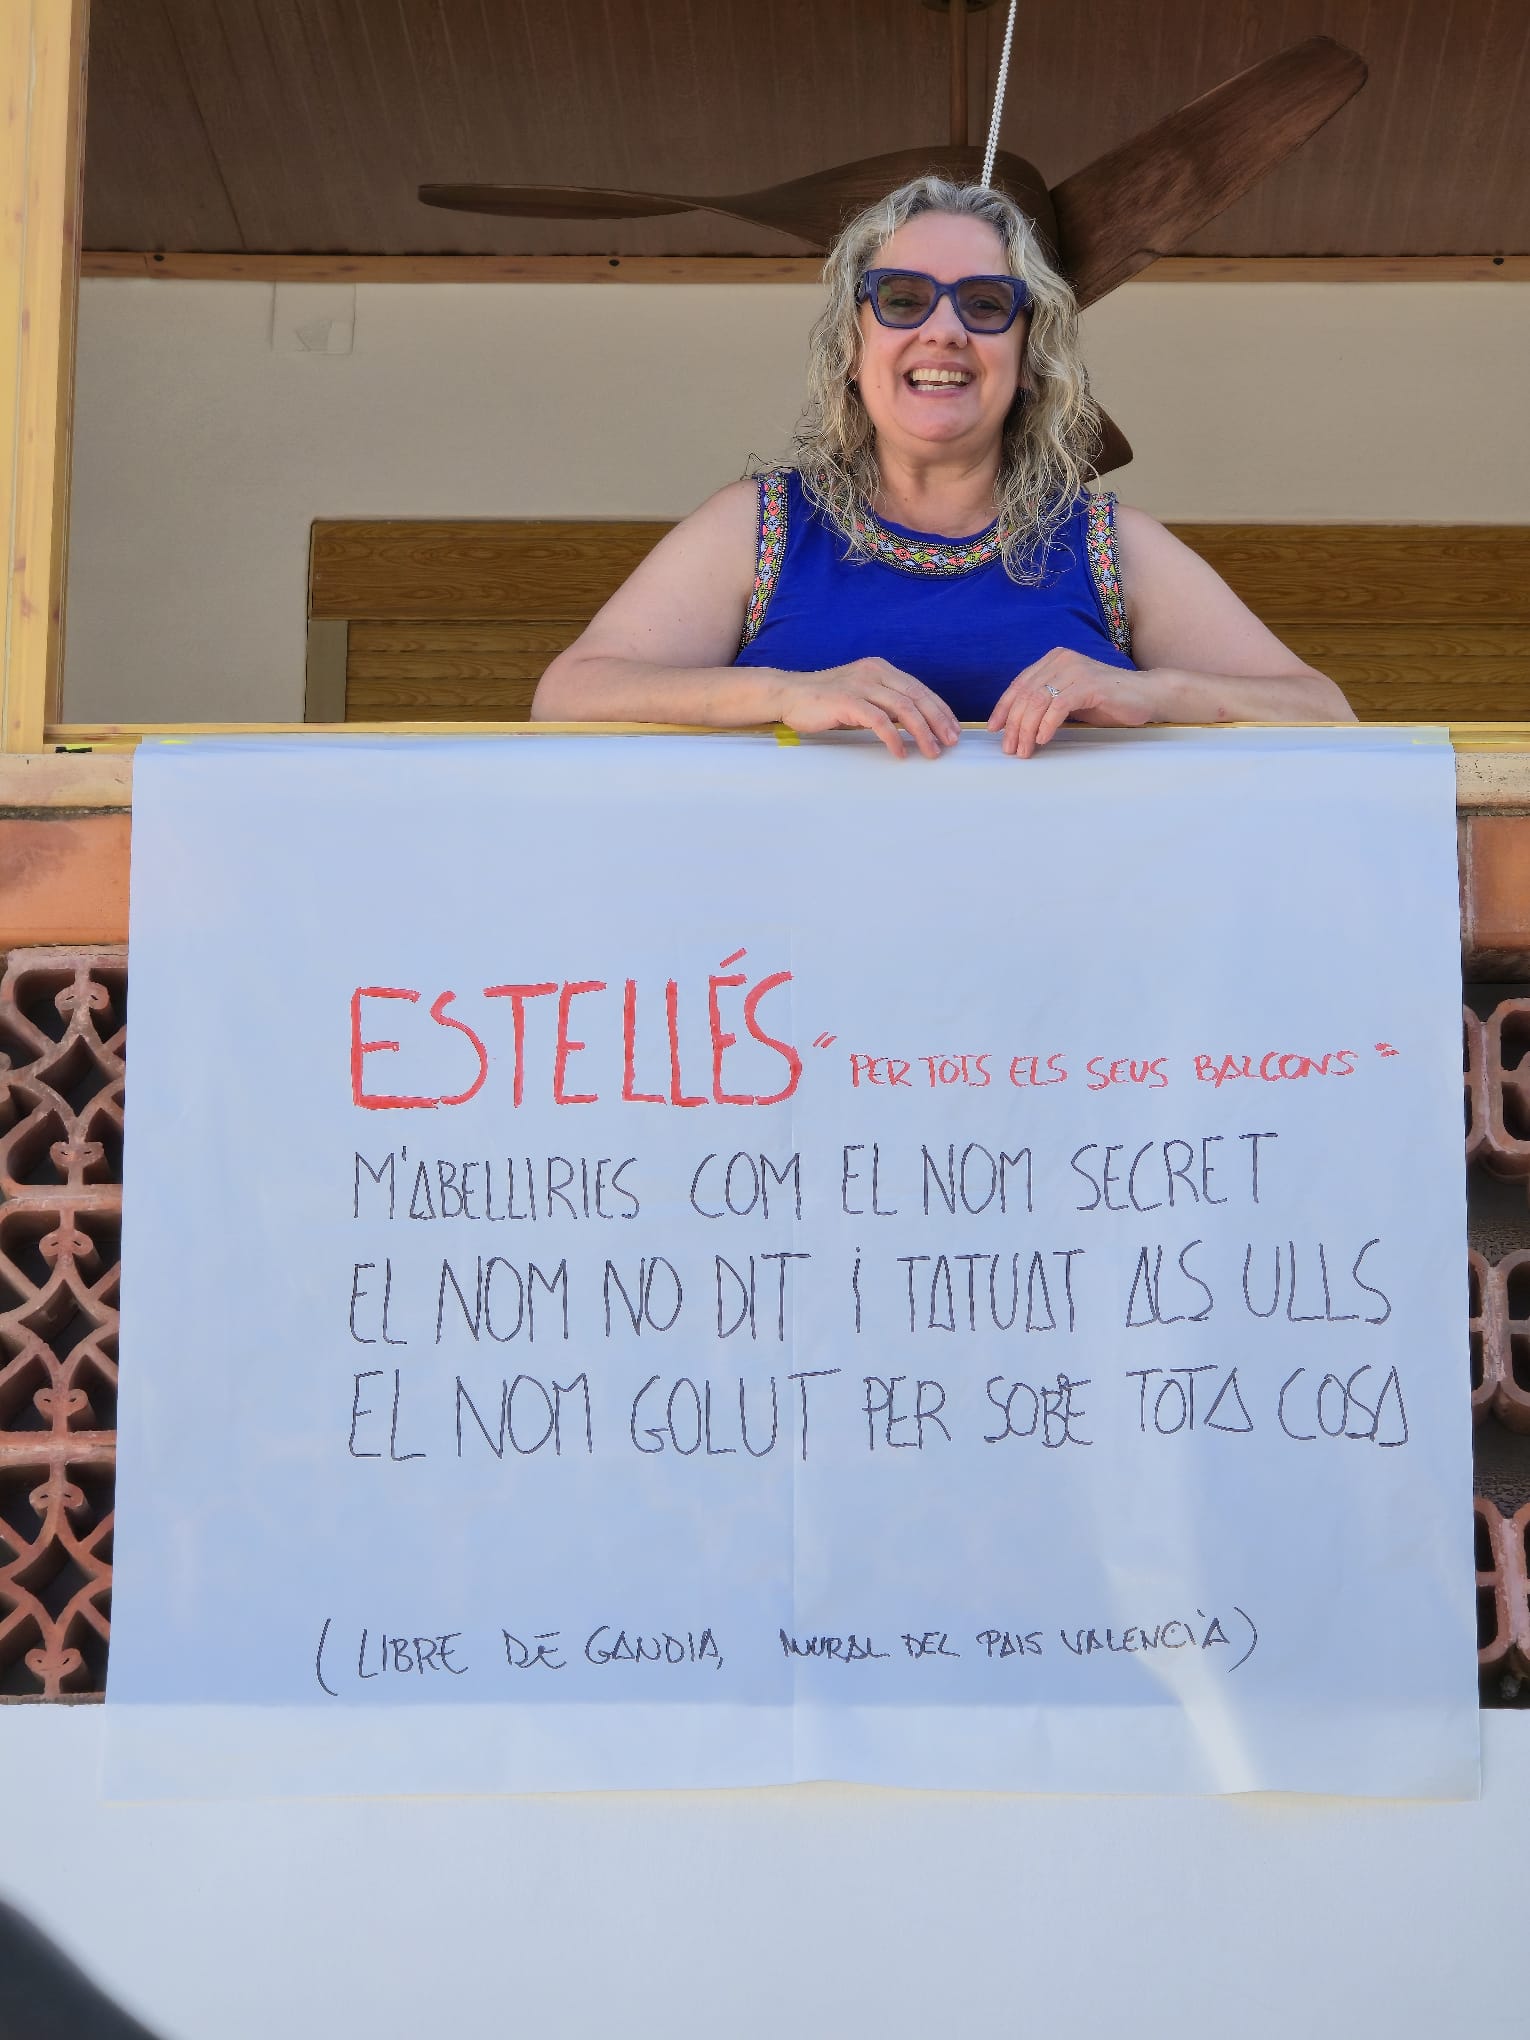 ESTELLÉS "PER TOTS ELS SEUS BALCONS"
M'ABELLIRIES COM EL NOM SECRET
EL NOM NO DIT I TATUAT ALS ULLS
EL NOM GOLUT PER SOBE TOTA COSA
(LIBRE DE GANDIA, MURAL DEL PAIS VALENCIÀ)